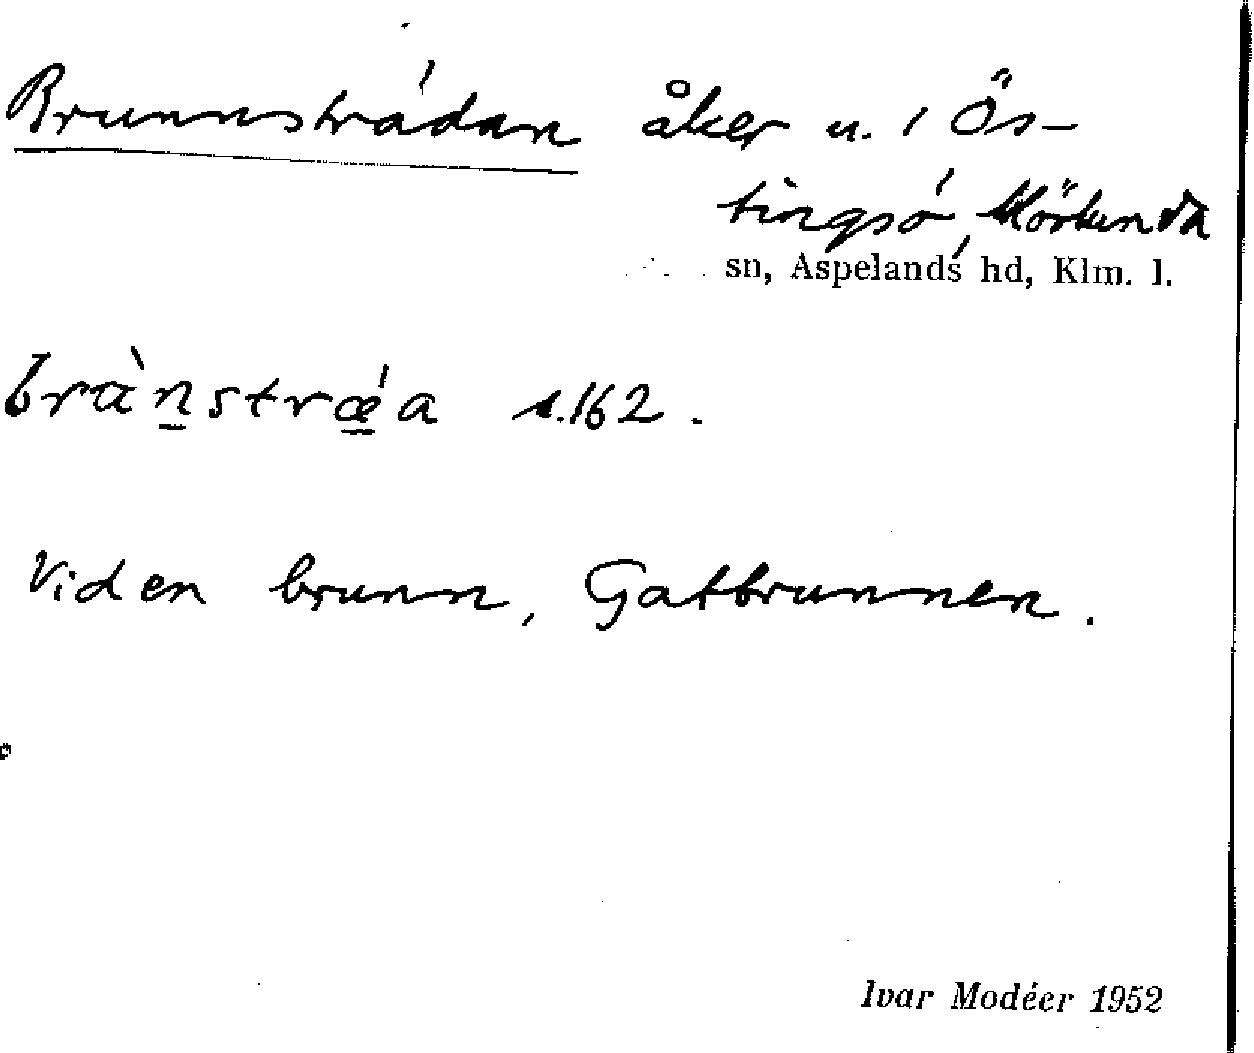 Brunnsträdan åker u. i Ös-
tingsö, Mörlunda
sn, Aspelands hd, Klm. l.
s. 162.
Vid en brunn, Gatbrunnen.
Ivar Modéer 1952